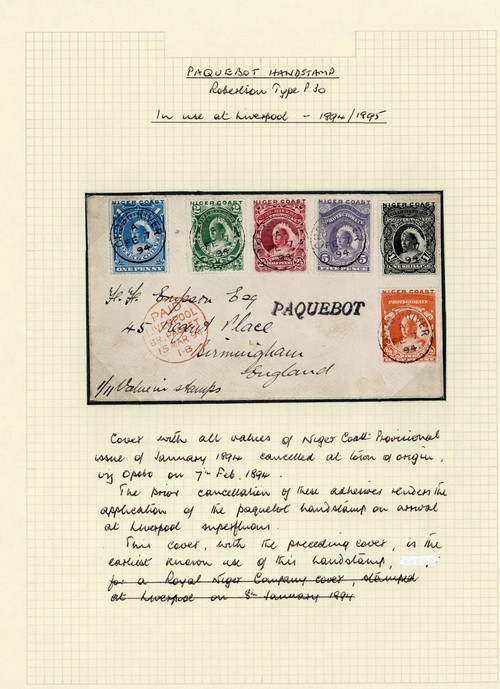 PAQUEBOT HANDSTAMP
Robertson Type P.30
In use at Liverpool - 1894/1995
NIGER COAST NIGER COAST NIGER COAST NIGER COAST NIGER COAST
PROTECTORATE
ONE PENNY
FIVE PENCE
ONE SHILLING
FE 7
94
H. H. Simpson Esq
PAQUEBOT
PAID
LIVERPOOL
15 MAR 94
1-B
45 Place
Birmingham
England
1/11 Value in stamps
Cover with all values of Niger Coast Provisional
issue of January 1894 cancelled at town of origin,
viz Opobo on 7th Feb. 1894.
The prior cancellation of these adhesives renders the
application of the paquebot handstamp on arrival
at Liverpool superfluous.
This cover, with the preceding cover, is the
earliest known use of this handstamp,
for a Royal Niger Company cover, stamped
at Liverpool on 8th January 1894